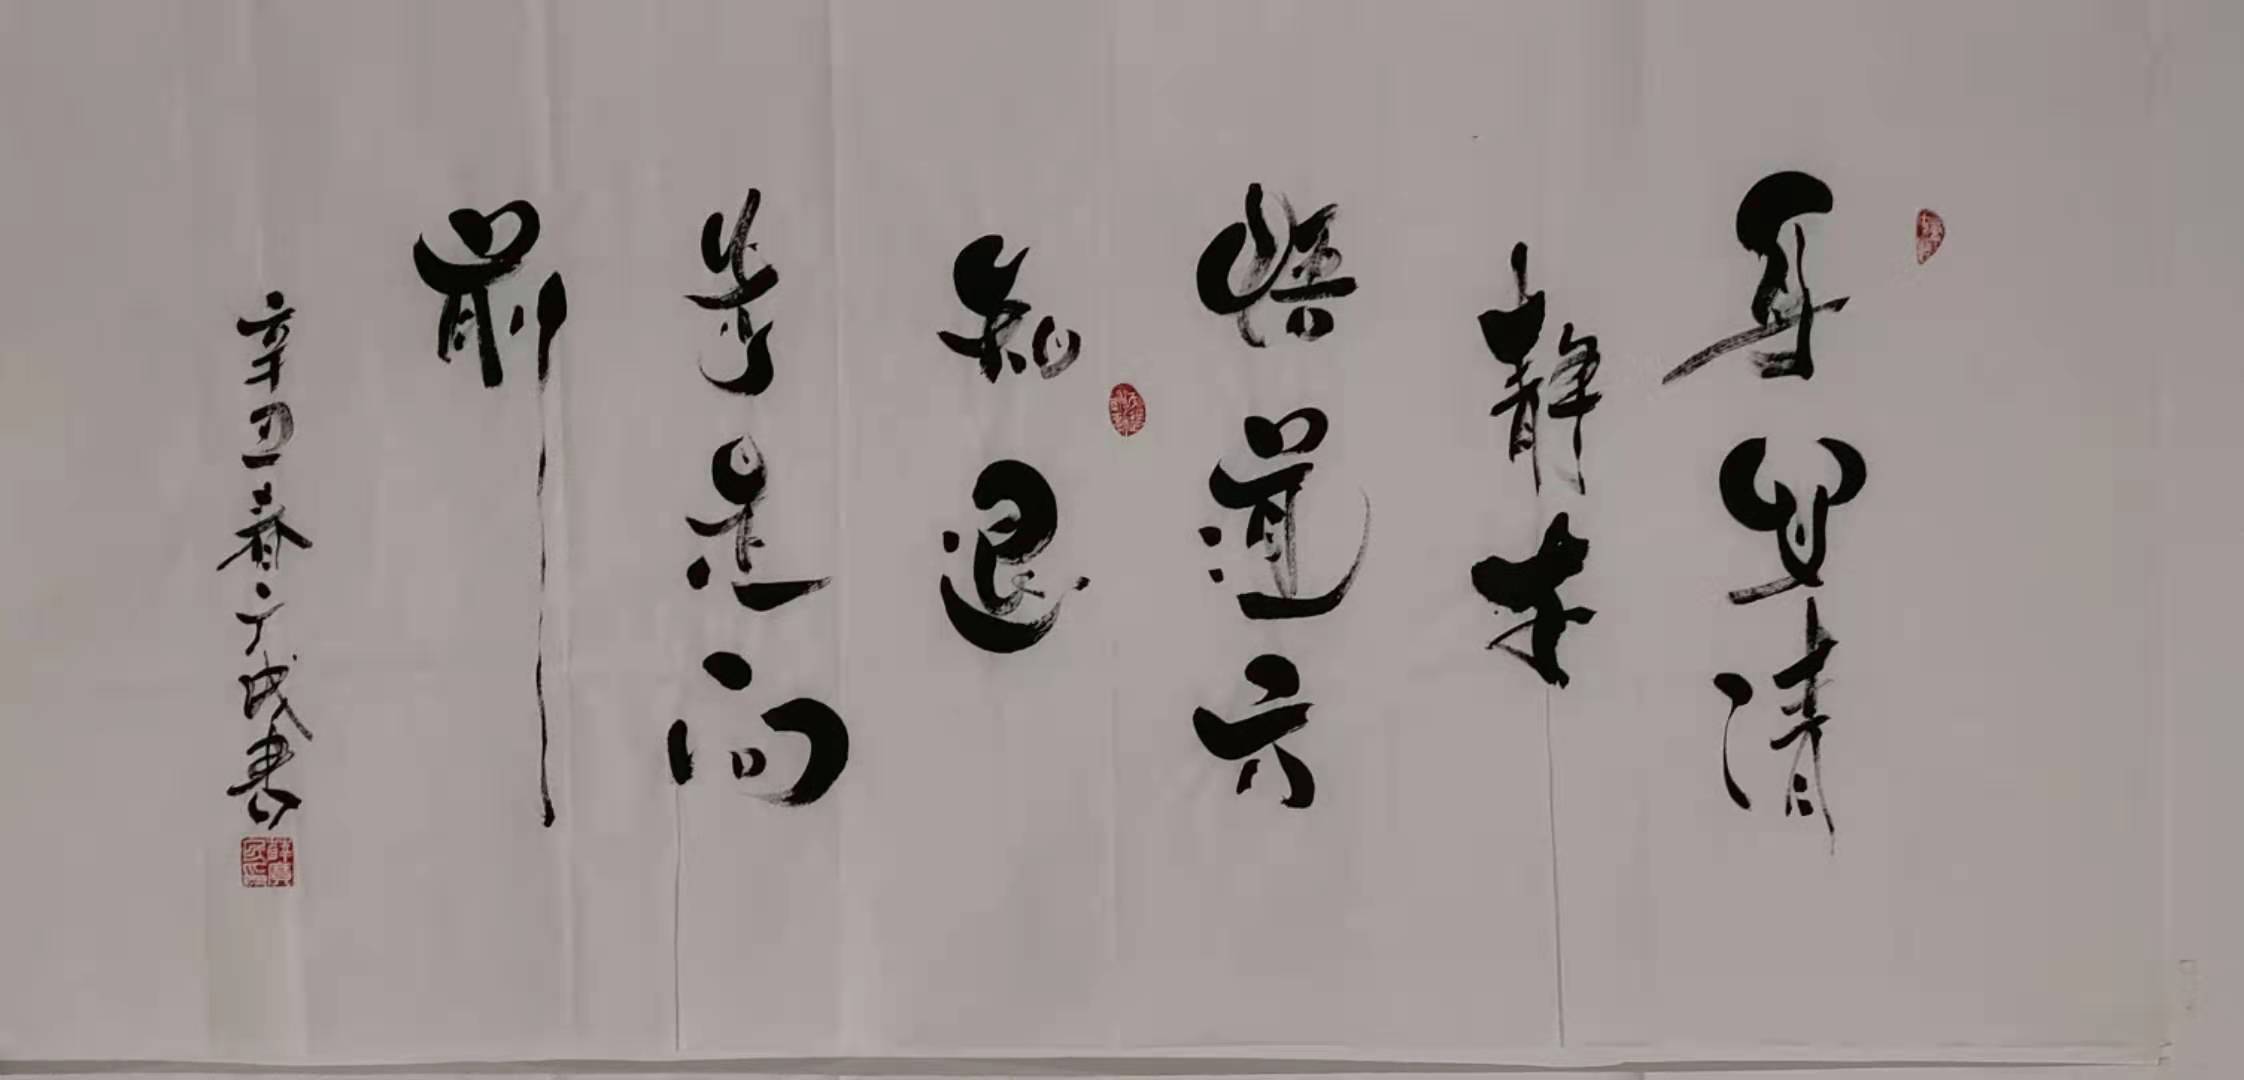 身清
静才
悟道方
知退
步是向
前
辛丑春广书